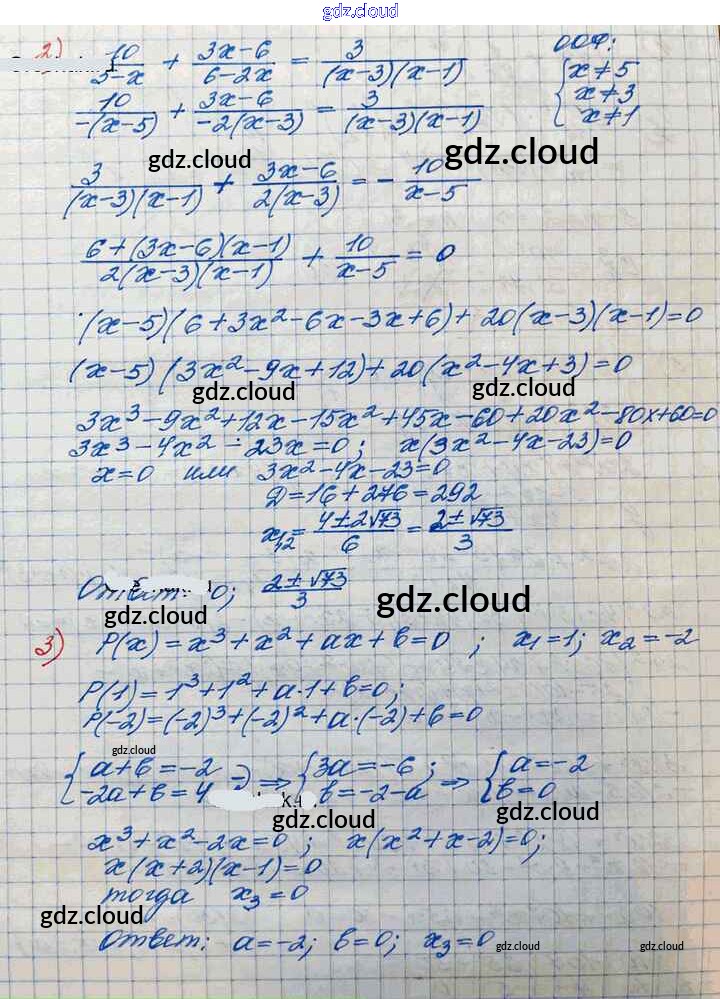 gdz.cloud
2) 10/(5-x) + (3x-6)/(6-2x) = 3/((x-3)(x-1)) ООФ:
{x≠5
x≠3
x≠1
10/(-(x-5)) + (3x-6)/(-2(x-3)) = 3/((x-3)(x-1))
gdz.cloud gdz.cloud
3/((x-3)(x-1)) + (3x-6)/(2(x-3)) = - 10/(x-5)
(6+(3x-6)(x-1))/(2(x-3)(x-1)) + 10/(x-5) = 0
(x-5)(6+3x²-6x-3x+6)+20(x-3)(x-1)=0
(x-5)(3x²-9x+12)+20(x²-4x+3)=0
gdz.cloud gdz.cloud
3x³-9x²+12x-15x²+45x-60+20x²-80x+60=0
3x³-4x²-23x=0; x(3x²-4x-23)=0
x=0 или 3x²-4x-23=0
Д=16+276=292
x₁,₂ = (4±2√73)/6 = (2±√73)/3
Ответ: 0; (2±√73)/3
gdz.cloud gdz.cloud
3) P(x)=x³+x²+ax+b=0; x₁=1; x₂=-2
P(1)=1³+1²+a·1+b=0;
P(-2)=(-2)³+(-2)²+a·(-2)+b=0
gdz.cloud
{a+b=-2
-2a+b=4 -) ⇒ {3a=-6;
b=-2-a ⇒ {a=-2
b=0
gdz.cloud gdz.cloud
x³+x²-2x=0; x(x²+x-2)=0;
x(x+2)(x-1)=0
тогда x₃=0
gdz.cloud
Ответ: a=-2; b=0; x₃=0
gdz.cloud gdz.cloud